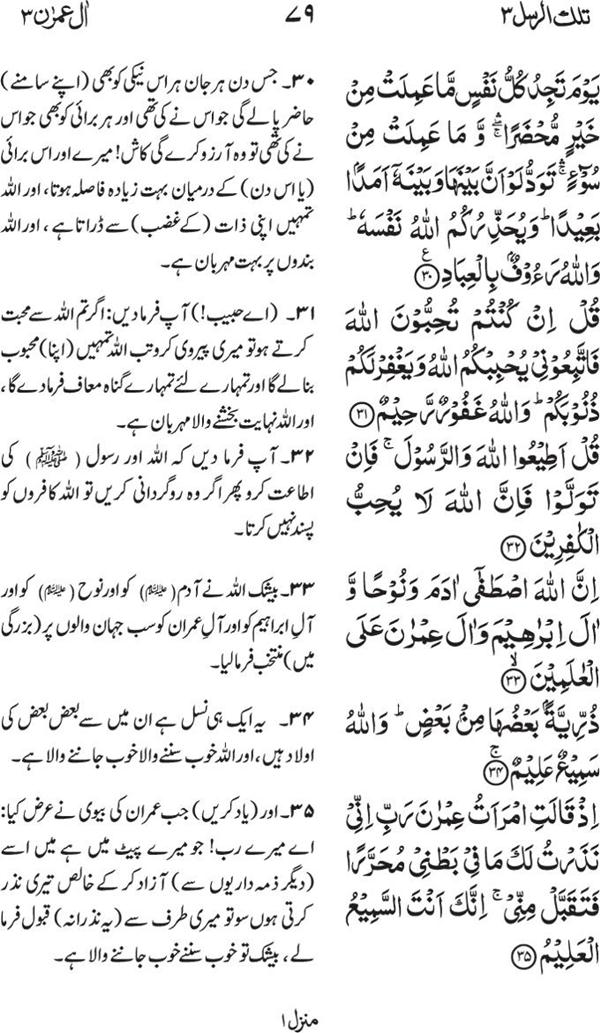 تلك الرسل ۳
۷۹
اٰل عمرٰن ۳
يَوْمَ تَجِدُ كُلُّ نَفْسٍ مَّا عَمِلَتْ مِنْ
خَيْرٍ مُّحْضَرًا ۛۚ وَّ مَا عَمِلَتْ مِنْ
سُوْٓءٍ ۛۚ تَوَدُّ لَوْ اَنَّ بَيْنَهَا وَبَيْنَهٗۤ اَمَدًۢا
بَعِيْدًا ؕ وَيُحَذِّرُكُمُ اللّٰهُ نَفْسَهٗ ؕ
وَاللّٰهُ رَءُوْفٌۢ بِالْعِبَادِ ۠ ﴿۳۰﴾
قُلْ اِنْ كُنْتُمْ تُحِبُّوْنَ اللّٰهَ
فَاتَّبِعُوْنِيْ يُحْبِبْكُمُ اللّٰهُ وَيَغْفِرْ لَكُمْ
ذُنُوْبَكُمْ ؕ وَاللّٰهُ غَفُوْرٌ رَّحِيْمٌ ﴿۳۱﴾
قُلْ اَطِيْعُوا اللّٰهَ وَالرَّسُوْلَ ۚ فَاِنْ
تَوَلَّوْا فَاِنَّ اللّٰهَ لَا يُحِبُّ
الْكٰفِرِيْنَ ﴿۳۲﴾
اِنَّ اللّٰهَ اصْطَفٰۤى اٰدَمَ وَنُوْحًا وَّ
اٰلَ اِبْرٰهِيْمَ وَاٰلَ عِمْرٰنَ عَلَى
الْعٰلَمِيْنَ ۙ ﴿۳۳﴾
ذُرِّيَّةًۢ بَعْضُهَا مِنْۢ بَعْضٍ ؕ وَاللّٰهُ
سَمِيْعٌ عَلِيْمٌ ۚ ﴿۳۴﴾
اِذْ قَالَتِ امْرَاَتُ عِمْرٰنَ رَبِّ اِنِّيْ
نَذَرْتُ لَكَ مَا فِيْ بَطْنِيْ مُحَرَّرًا
فَتَقَبَّلْ مِنِّيْ ۚ اِنَّكَ اَنْتَ السَّمِيْعُ
الْعَلِيْمُ ﴿۳۵﴾
۳۰۔ جس دن ہر جان ہر اس نیکی کو بھی (اپنے سامنے)
حاضر پا لے گی جو اس نے کی تھی اور ہر برائی کو بھی جو اس
نے کی تھی تو وہ آرزو کرے گی کاش! میرے اور اس برائی
(یا اس دن) کے درمیان بہت زیادہ فاصلہ ہوتا، اور اللہ
تمہیں اپنی ذات (کے غضب) سے ڈراتا ہے، اور اللہ
بندوں پر بہت مہربان ہے۔
۳۱۔ (اے حبیب!) آپ فرما دیں: اگر تم اللہ سے محبت
کرتے ہو تو میری پیروی کرو تب اللہ تمہیں (اپنا) محبوب
بنا لے گا اور تمہارے لئے تمہارے گناہ معاف فرما دے گا،
اور اللہ نہایت بخشنے والا مہربان ہے۔
۳۲۔ آپ فرما دیں کہ اللہ اور رسول (ﷺ) کی
اطاعت کرو پھر اگر وہ روگردانی کریں تو اللہ کافروں کو
پسند نہیں کرتا۔
۳۳۔ بیشک اللہ نے آدم (علیہ السلام) کو اور نوح (علیہ السلام) کو اور
آلِ ابراہیم کو اور آلِ عمران کو سب جہان والوں پر (بزرگی
میں) منتخب فرما لیا۔
۳۴۔ یہ ایک ہی نسل ہے ان میں سے بعض بعض کی
اولاد ہیں، اور اللہ خوب سننے والا خوب جاننے والا ہے۔
۳۵۔ اور (یاد کریں) جب عمران کی بیوی نے عرض کیا:
اے میرے رب! جو میرے پیٹ میں ہے میں اسے
(دیگر ذمہ داریوں سے) آزاد کر کے خالص تیری نذر
کرتی ہوں سو تو میری طرف سے (یہ نذرانہ) قبول فرما
لے، بیشک تو خوب سننے خوب جاننے والا ہے۔
منزل ۱